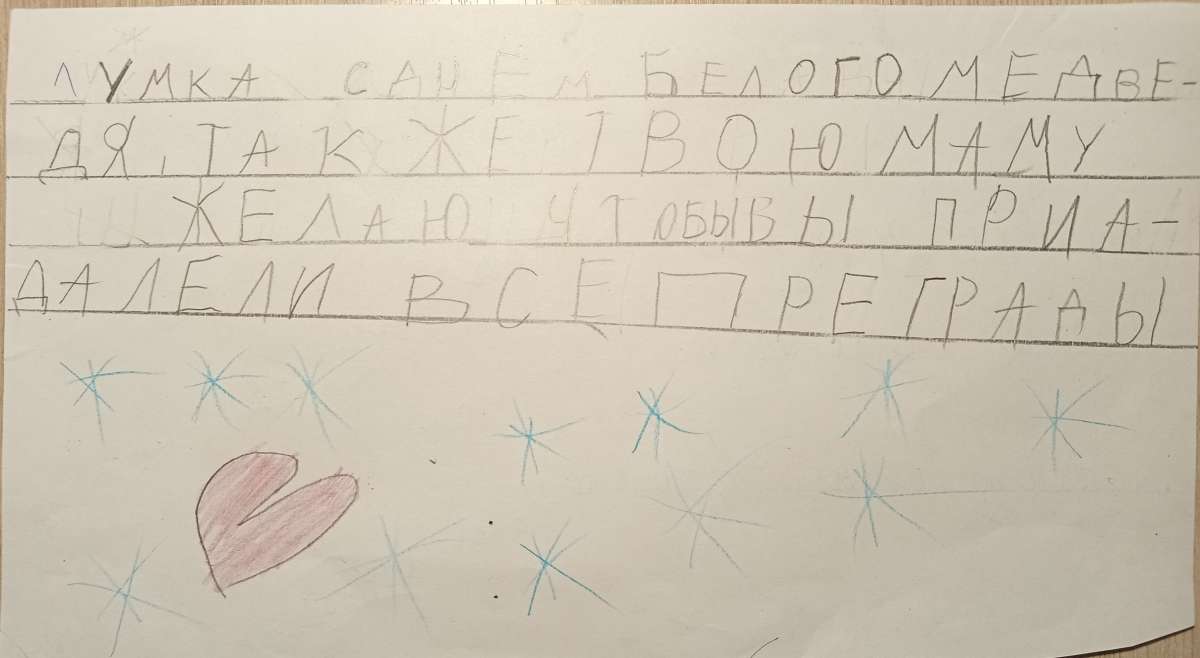 ЛУМКА С ДНЕМ БЕЛОГО МЕДВЕ-
ДЯ, ТАК ЖЕ ТВОЮ МАМУ
ЖЕЛАЮ ЧТОБЫ ВЫ ПРИА-
ДАЛЕЛИ ВСЕ ПРЕГРАДЫ